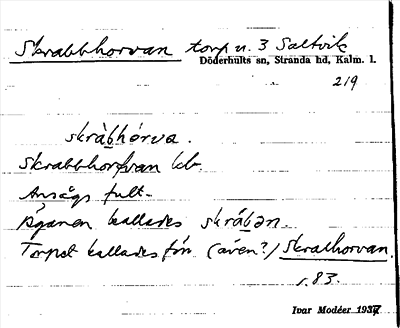 Skrabbhorvan torp u. 3 Saltvik
Döderhults sn, Stranda hd, Kalm. l.
219
skràbhórva.
Skrabbhorvan kb.
Ansågs fult.
Ägaren kallades skrábən.
Torpet kallades förr (även?) Skralhorvan.
s. 83.
Ivar Modéer 1937